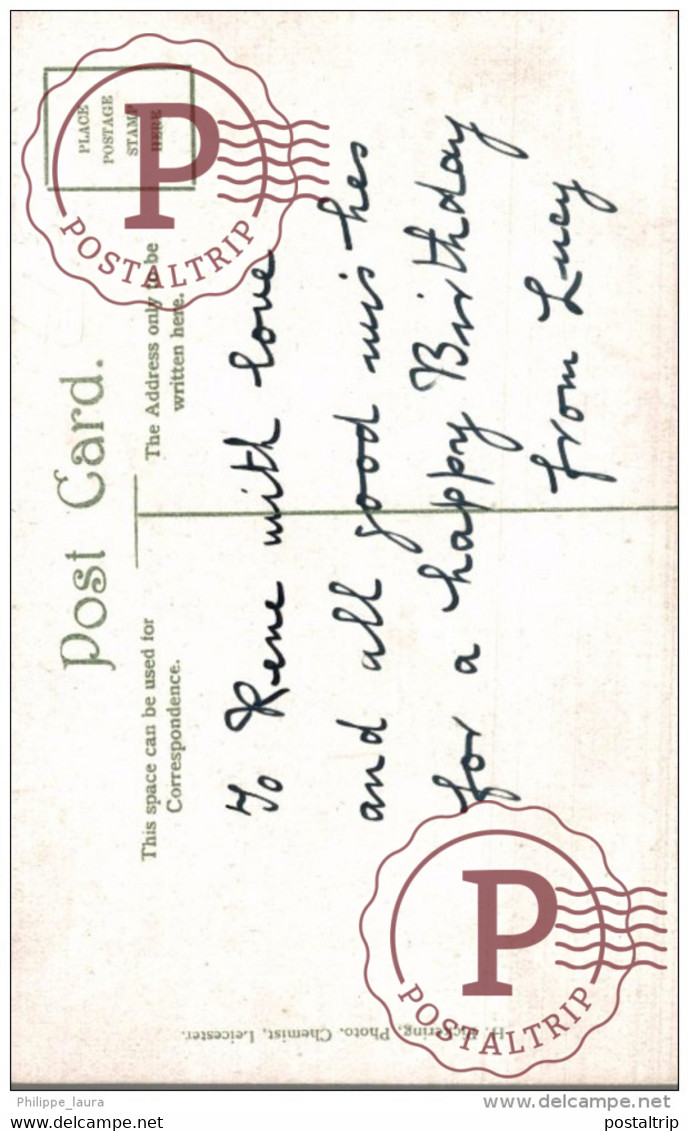 Post Card.
PLACE
POSTAGE
STAMP
HERE
This space can be used for
Correspondence.
The Address only to be
written here.
To Rene with love
and all good wishes
for a happy Birthday
from Lucy
Pickering, Photo. Chemist, Leicester.
P
POSTALTRIP
P
POSTALTRIP
Philippe_laura
delcampe.net
website
postaltrip